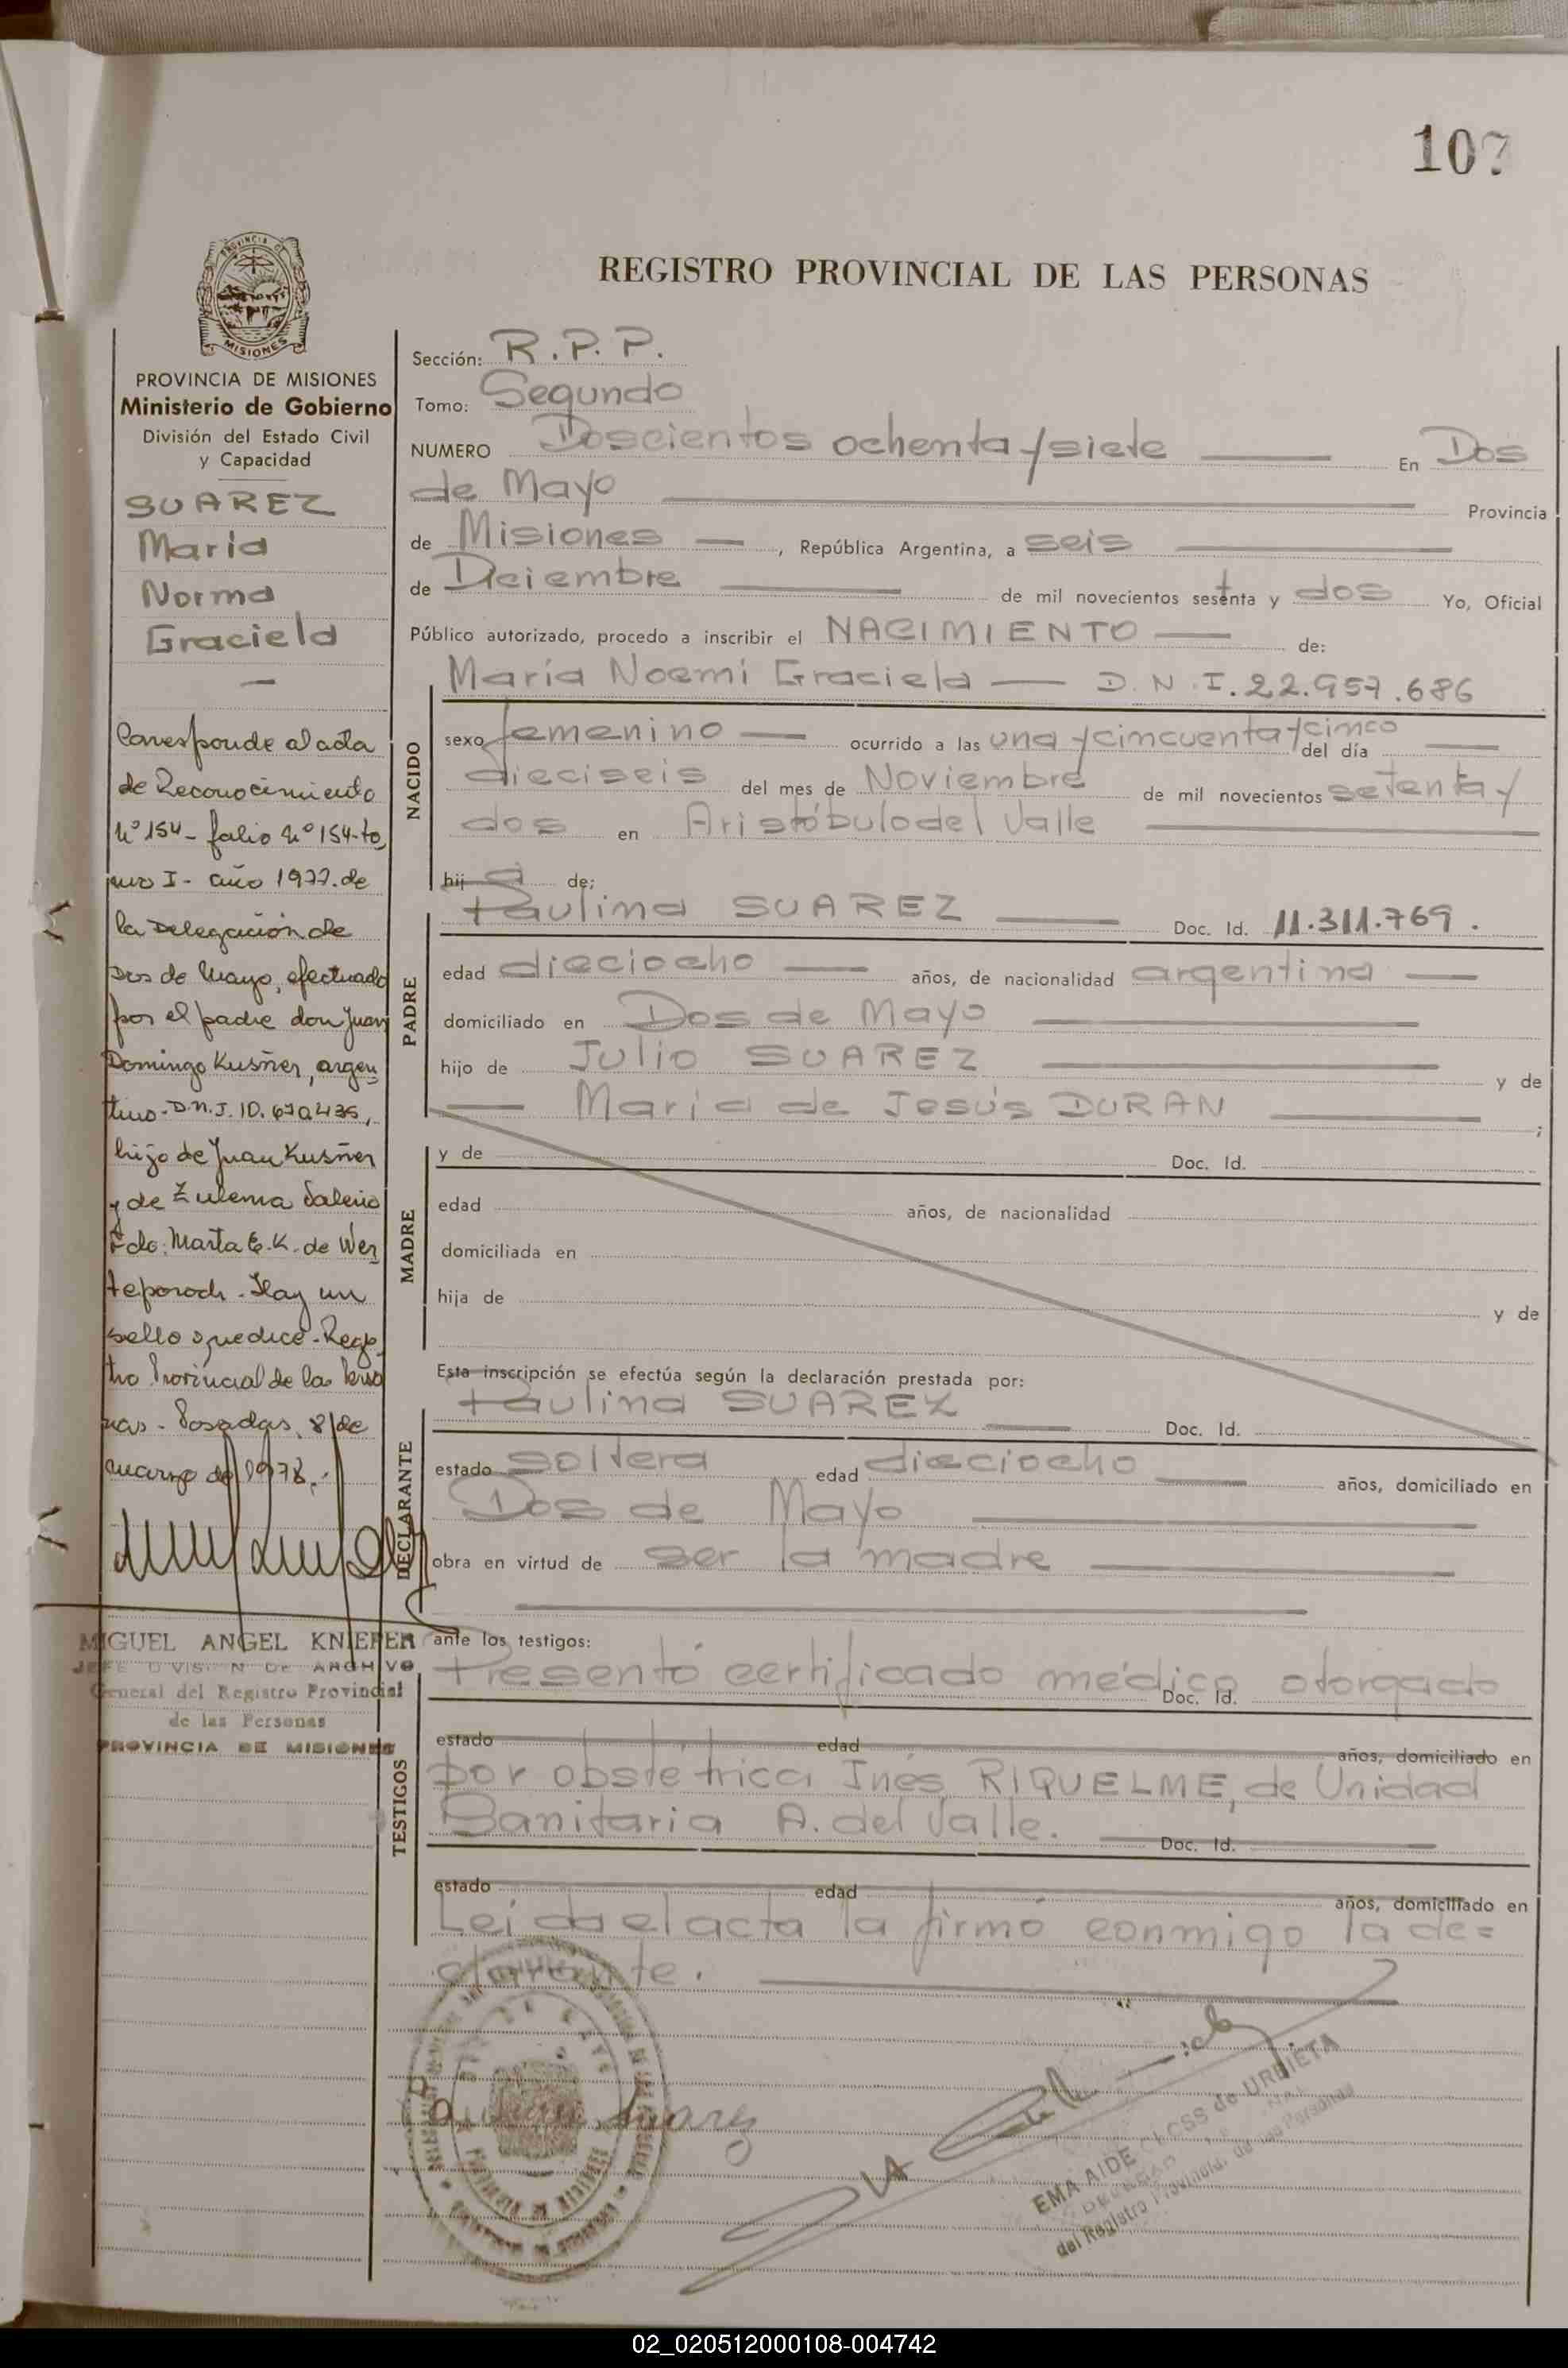 107
REGISTRO PROVINCIAL DE LAS PERSONAS
PROVINCIA DE MISIONES
Ministerio de Gobierno
División del Estado Civil
y Capacidad
SUAREZ
María
Norma
Graciela
Corresponde al acta
de Reconocimiento
Nº 154 - folio Nº 154 - to
mo I - año 1977. de
la Delegación de
Dos de Mayo, efectuado
por el padre don Juan
Domingo Kusñer, argen
tino - D.N.I. 10.670.435,
hijo de Juan Kusñer
y de Zulema
Fdo: Marta E.K. de Wer
. Hay un
sello que dice - Regis
tro Provincial de las Perso
nas - Posadas, 8 de
marzo de 1978.
MIGUEL ANGEL KNIEPER
JEFE DIVISION DE ARCHIVO
General del Registro Provincial
de las Personas
PROVINCIA DE MISIONES
Sección: R.P.P.
Tomo: Segundo
NUMERO Doscientos ochenta y siete En Dos
de Mayo Provincia
de Misiones, República Argentina, a seis
de Diciembre de mil novecientos sesenta y dos Yo, Oficial
Público autorizado, procedo a inscribir el NACIMIENTO de:
María Noemí Graciela — D.N.I. 22.957.686
NACIDO
sexo femenino ocurrido a las una y cincuenta y cinco del día
dieciseis del mes de Noviembre de mil novecientos setenta y
dos en Aristóbulo del Valle
hija de:
Paulina SUAREZ Doc. Id. 11.311.769.
PADRE
edad dieciocho años, de nacionalidad argentina
domiciliado en Dos de Mayo
hijo de Julio SUAREZ y de
María de Jesús DURAN ;
MADRE
y de Doc. Id.
edad años, de nacionalidad
domiciliada en
hija de y de
Esta inscripción se efectúa según la declaración prestada por:
Paulina SUAREZ Doc. Id.
DECLARANTE
estado soltera edad dieciocho años, domiciliado en
Dos de Mayo
obra en virtud de ser la madre
ante los testigos:
Presentó certificado médico otorgado
Doc. Id.
TESTIGOS
estado edad años, domiciliado en
por obstetrica Inés RIQUELME, de Unidad
Sanitaria A. del Valle.
Doc. Id.
estado edad años, domiciliado en
Leida el acta la firmó conmigo la de=
clarante.
Suarez
EMA AIDE CLOSS de URRIETA
del Registro Provincial de las Personas
02_020512000108-004742